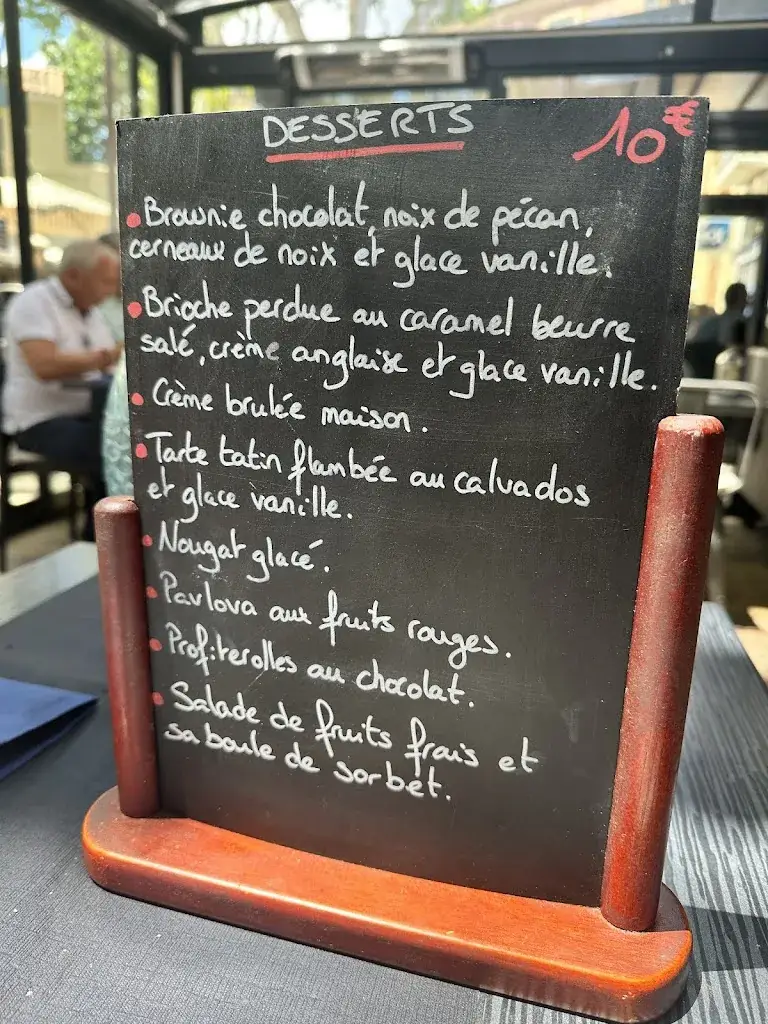 DESSERTS 10€
• Brownie chocolat, noix de pécan,
cerneaux de noix et glace vanille.
• Brioche perdue au caramel beurre
salé, crème anglaise et glace vanille.
• Crème brulée maison.
• Tarte tatin flambée au calvados
et glace vanille.
• Nougat glacé.
• Pavlova aux fruits rouges.
• Profiterolles au chocolat.
• Salade de fruits frais et
sa boule de sorbet.